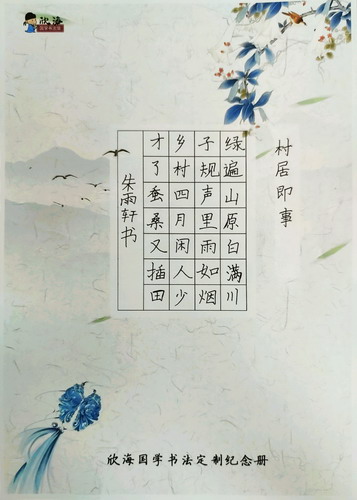 欣海
村居即事
绿遍山原白满川
子规声里雨如烟
乡村四月闲人少
才了蚕桑又插田
朱雨轩书
欣海国学书法定制纪念册